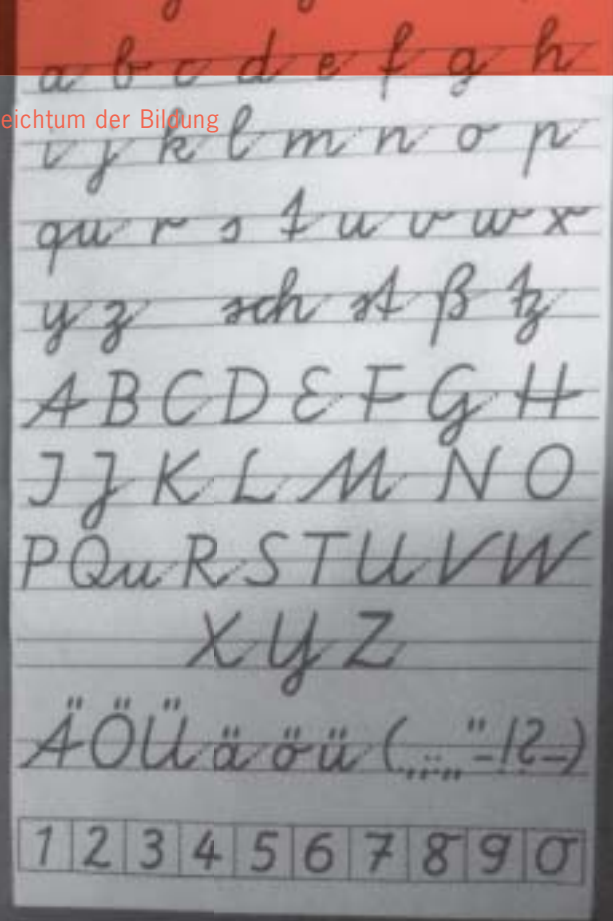 a b c d e f g h
eichtum der Bildung
i j k l m n o p
qu r s t u v w x
y z sch st ß tz
A B C D E F G H
I J K L M N O
P Qu R S T U V W
X Y Z
Ä Ö Ü ä ö ü ( , . : ; „ " - ! ? – )
1 2 3 4 5 6 7 8 9 0